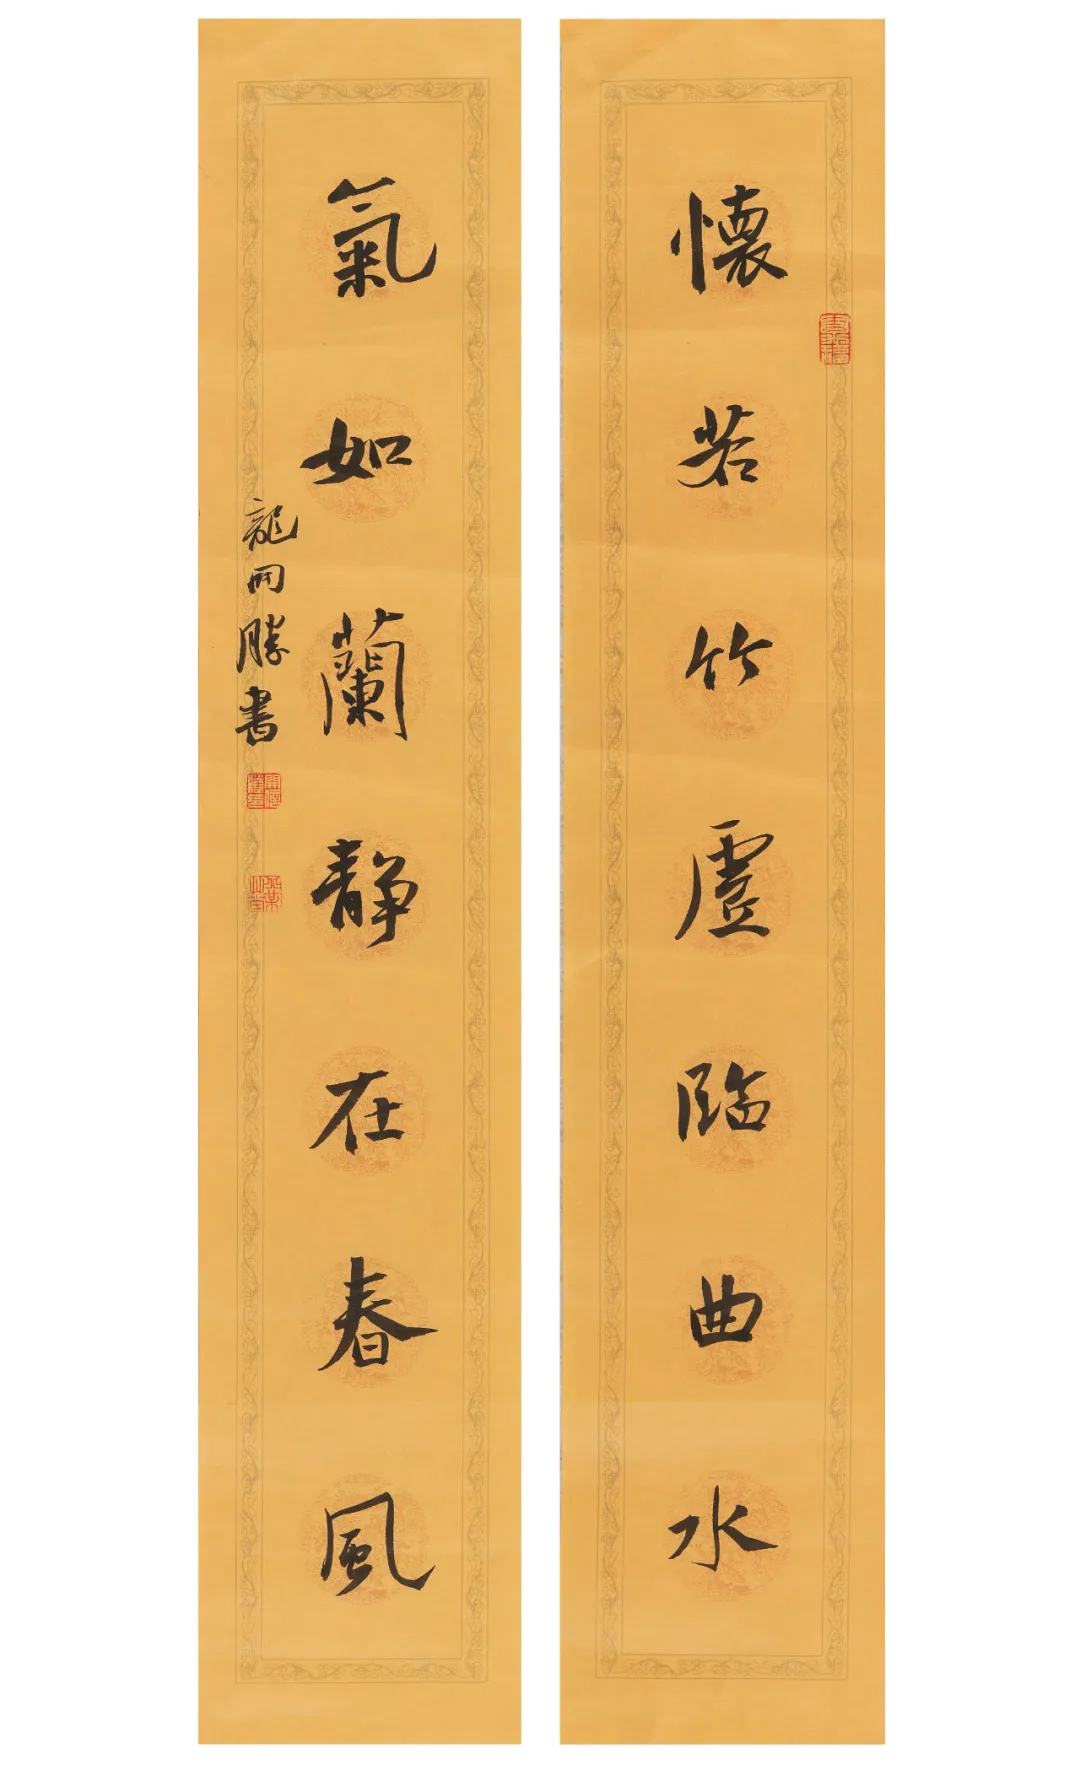 懷若竹虛臨曲水
氣如蘭靜在春風
龍開勝書